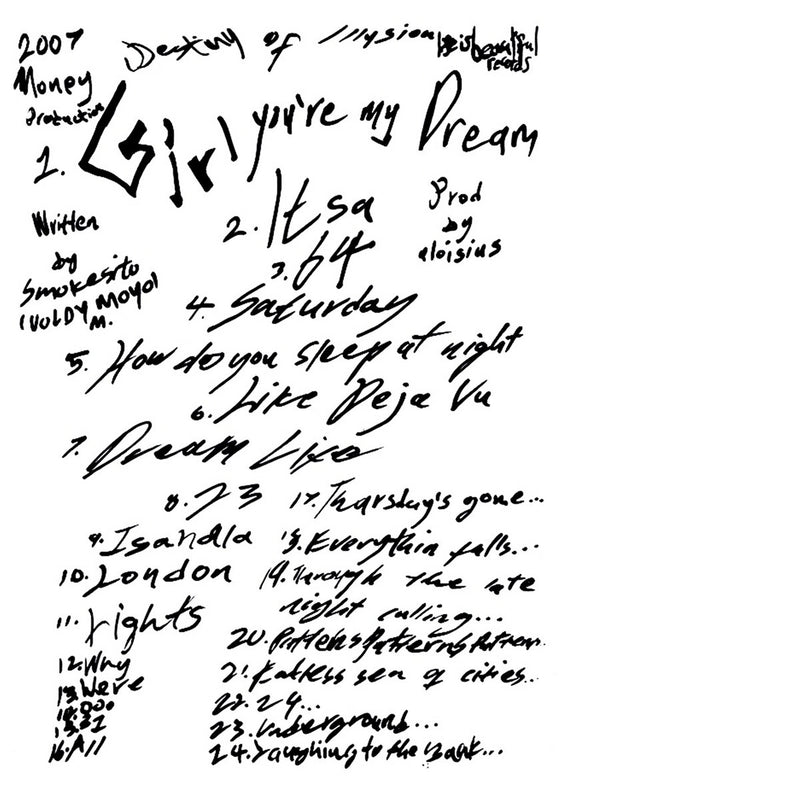 2007 Destiny of Illysion
beautiful
records
Money
Production
1. Girl you're my Dream
2. Itsa
Prod
by
aloisius
Written
by
Smokesito
(VULDY MOYO)
M.
3. 64
4. Saturday
5. How do you sleep at night
6. Like Deja Vu
7. Dream Like
8. 23
9. Isandla
10. London
11. Lights
12. Why
13. Were
14.
15. 21
16. All
17. Tharsday's gone...
18. Everythin falls...
19. Through the late
night calling...
20. Patterns Patterns Pattern...
21. sea of cities..
22. 24...
23. Underground...
24. Laughing to the Bank...